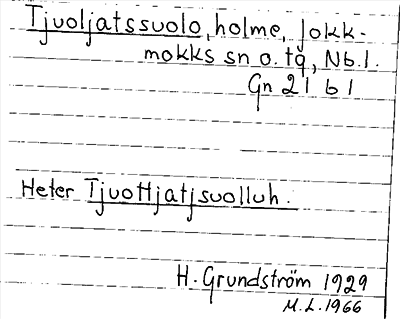 Tjuoljatssuolo, holme, Jokk-
mokks sn o. tg, Nb.l.
Gn 21 b 1
Heter Tjuottjatjsuolluh.
H. Grundström 1929
M.L. 1966